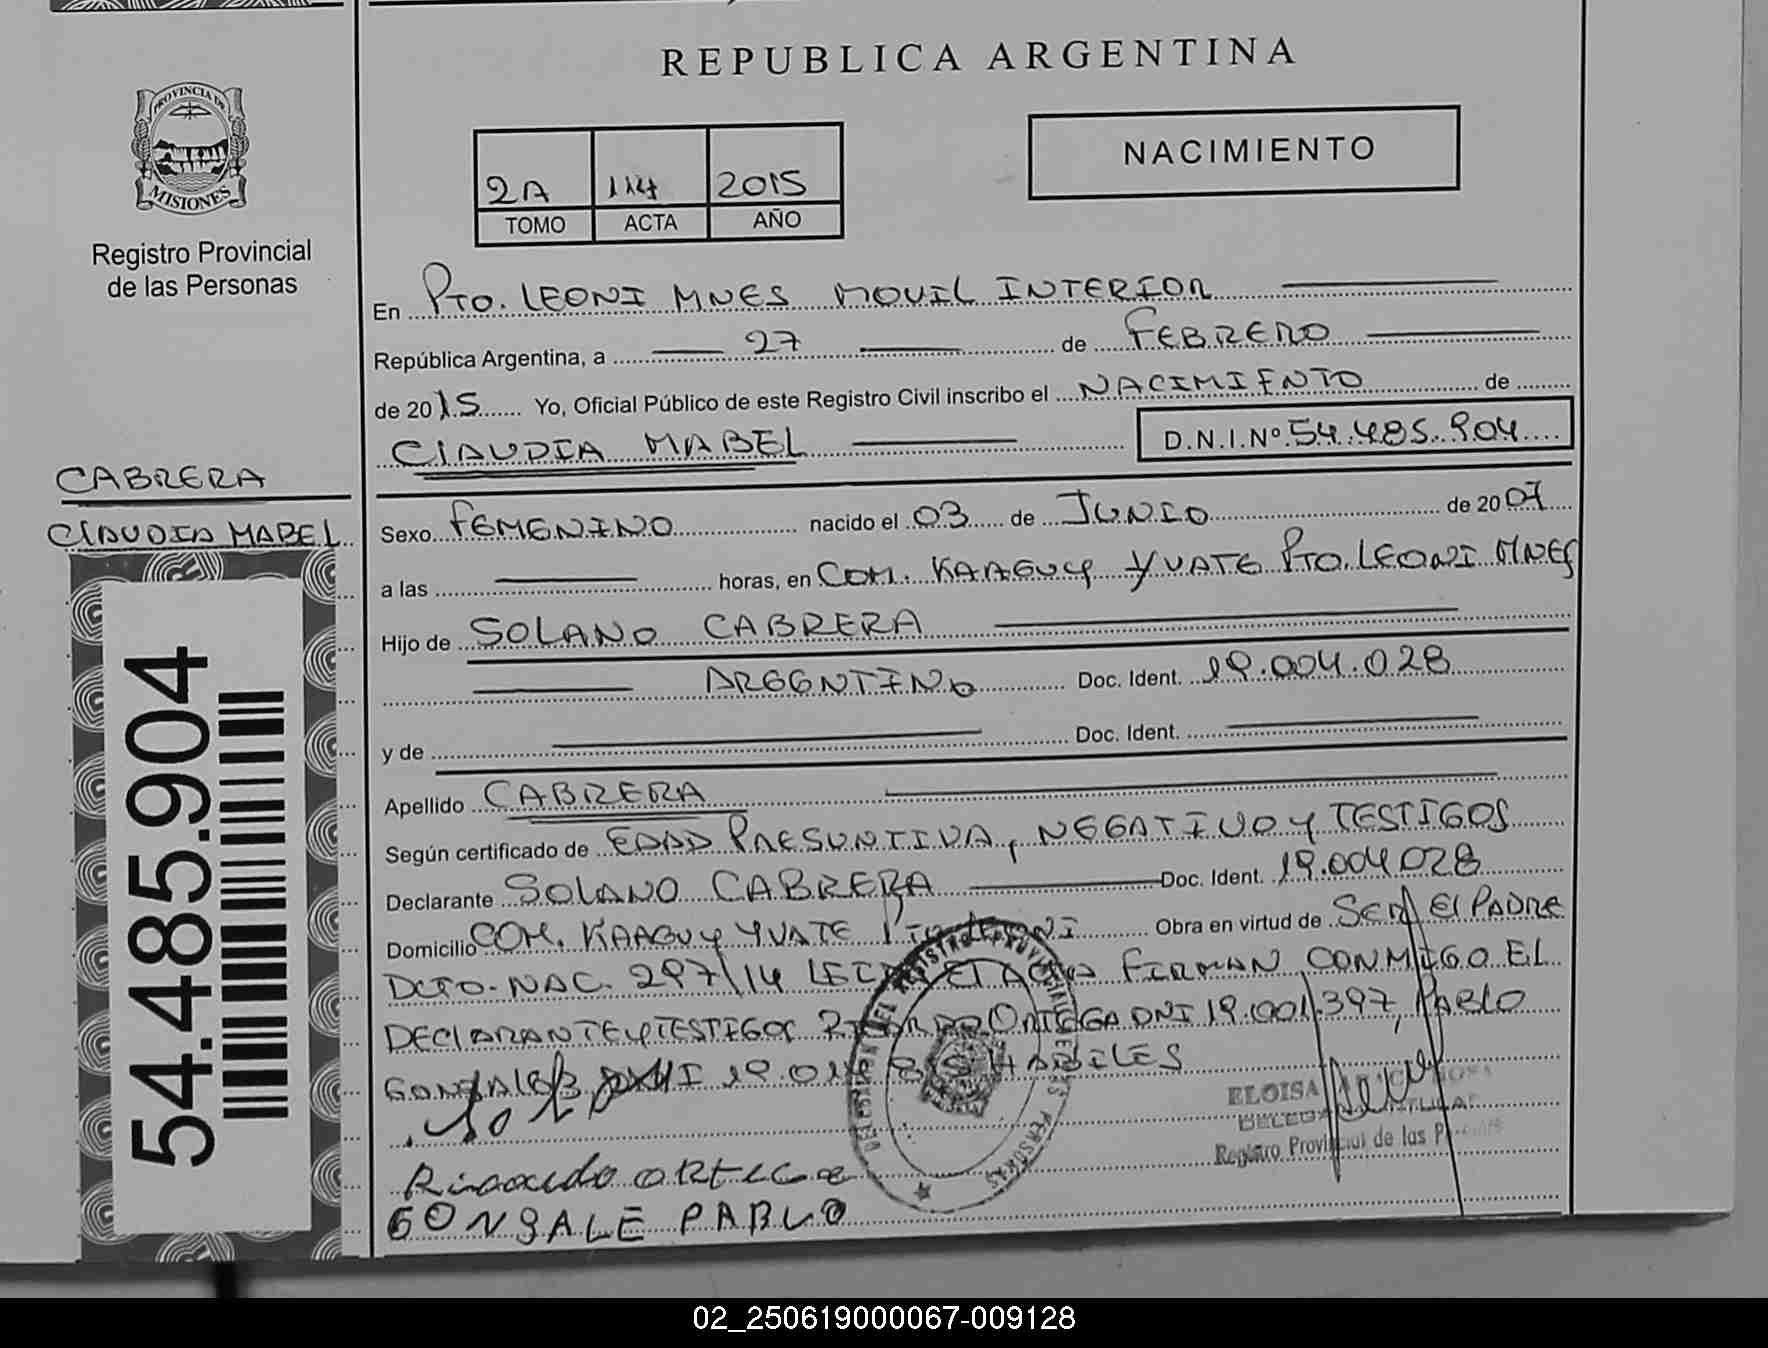 REPUBLICA ARGENTINA
PROVINCIA DE
MISIONES
Registro Provincial
de las Personas
NACIMIENTO
2A 114 2015
TOMO ACTA AÑO
En PTO. LEONI MNES MOVIL INTERIOR
República Argentina, a 27 de FEBRERO
de 2015 Yo, Oficial Público de este Registro Civil inscribo el NACIMIENTO de
CLAUDIA MABEL D.N.I.Nº 54.485.904
CABRERA
CLAUDIA MABEL
Sexo FEMENINO nacido el 03 de JUNIO de 2007
a las horas, en COM. KAAGUY YVATE PTO. LEONI MNES
Hijo de SOLANO CABRERA
ARGENTINO Doc. Ident. 19.004.028
y de Doc. Ident.
Apellido CABRERA
Según certificado de EDAD PRESUNTIVA, NEGATIVO Y TESTIGOS
Declarante SOLANO CABRERA Doc. Ident. 19.004.028
Domicilio COM. KAAGUY YVATE PTO LEONI Obra en virtud de SER EL PADRE
DCTO. NAC. 297/14 EL ACTA FIRMAN CONMIGO EL
DECLARANTE Y TESTIGOS RICARDO ORTEGA DNI 19.001.397, PABLO
HABILES
ELOISA
Registro Provincial de las
GONSALE PABLO
54.485.904
02_250619000067-009128